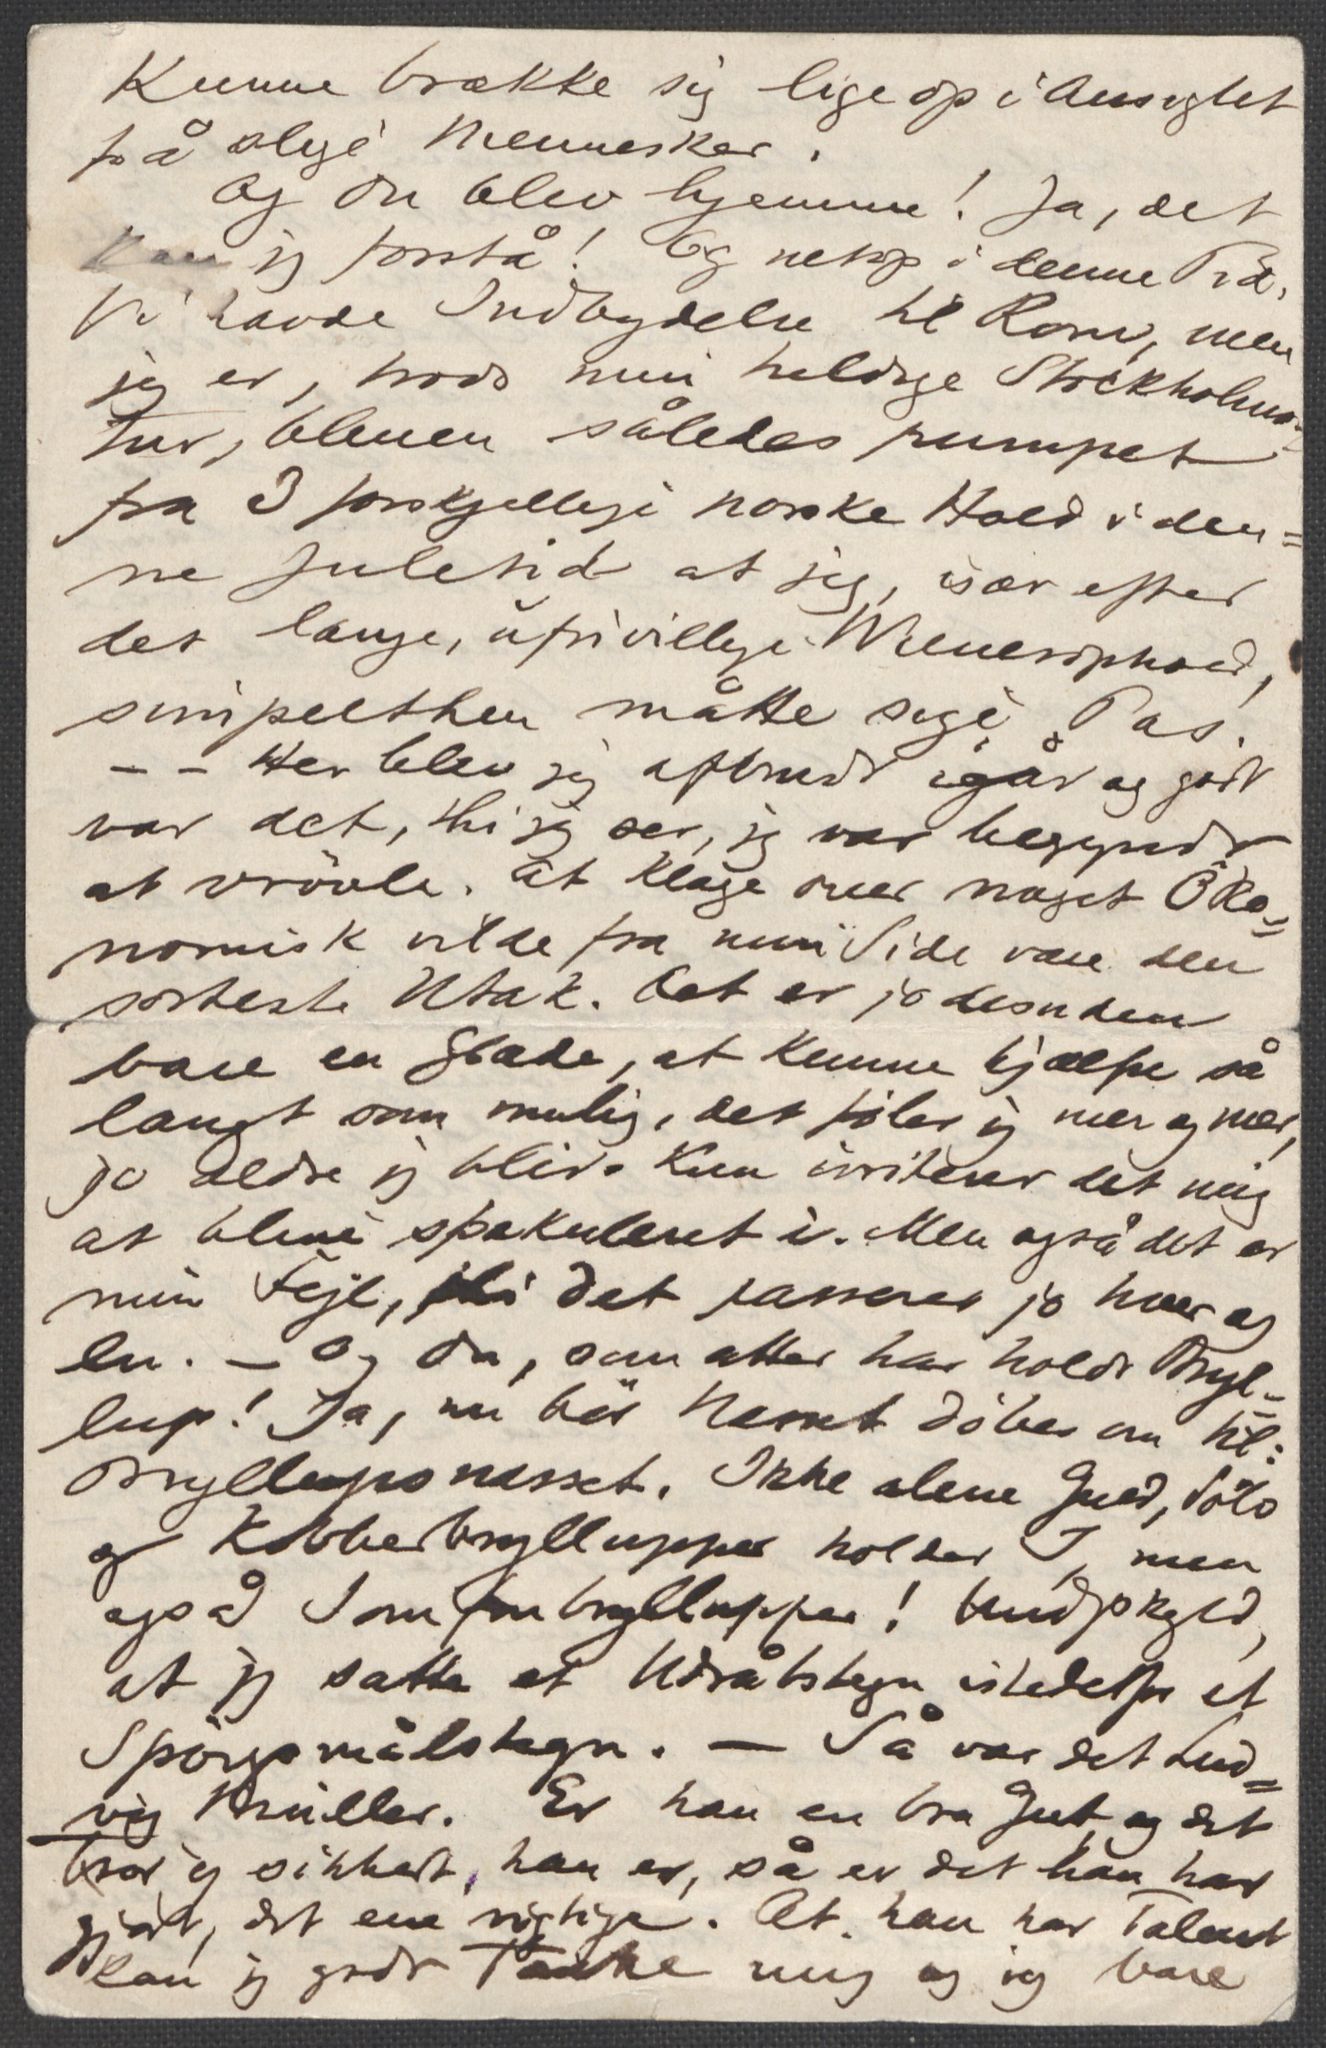 Kunne brække sig lige op i Ansigtet
på slige Mennesker.
Og Du blev hjemme! Ja, det
kan jeg forstå! Og netop i denne Tid.
Vi havde Indbydelse til Rom, men
jeg er, trods min heldige Stockholms-
Tur, bleven således pumpet
fra 3 forskjellige norske Hold i den=
ne Juletid at jeg, især efter
det lange, ufrivillige Wienerophold,
simpelthen måtte sige Pas.
-- Her blev jeg afbrudt igår og godt
var det, thi jeg ser, jeg var begyndt
at vrövle. At klage over noget Öko=
nomisk vilde fra min Side være den
sorteste Utak. Det er jo desuden
bare en Glæde, at kunne hjælpe så
langt som mulig, det föler jeg mer og mer,
jo ældre jeg blir. Kun irriterer det mig
at blive spekuleret i. Men også det er
min Fejl, thi det passerer jo hver og
en. – Og Du, som atter har holdt Bryl=
lup! Ja, nu bör Næsset döbes om til:
Bryllupsnæsset. Ikke alene Guld, Sölv
og Kobberbryllupper holder I, men
også Jomfrubryllupper! Undskyld,
at jeg satte et Udråbstegn istedetfor et
Spörgsmålstegn. — Så var det Lud=
vig Müller. Er han en bra Gut, og det
tror jeg sikkert, han er, så er det han har
gjort, det ene rigtige. At han har Talent
kan jeg godt tænke mig og jeg bare